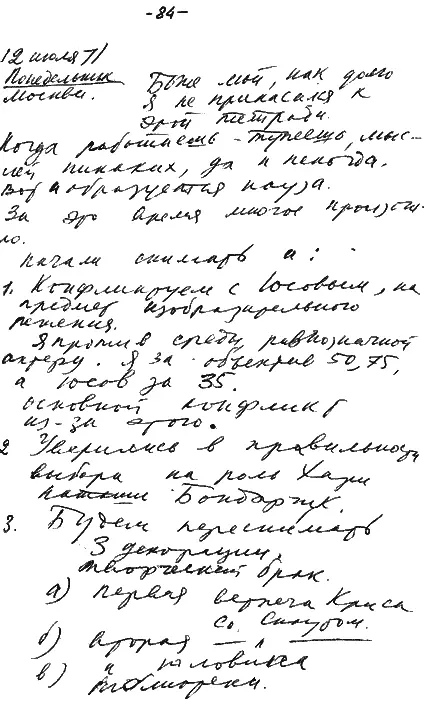 -84-
12 июля 71
Понедельник
Москва.
Боже мой, как долго
я не прикасался к
этой тетради.
Когда работаешь - тупеешь, мыс-
лей никаких, да и некогда.
Вот и образуется пауза.
За это время многое произош-
ло.
Начали снимать и:
1. Конфликтуем с Юсовым, на
предмет изобразительного
решения.
Я против среды, равнозначной
актеру. Я за объектив 50, 75,
а Юсов за 35.
Основной конфликт
из-за этого.
2 Уверились в правильности
выбора на роль Хари
Наташи Бондарчук.
3. Будем переснимать
3 декорации,
творческий брак.
а) первая встреча Криса
со Снаутом.
б) вторая — " —
в) и половина
библиотеки.